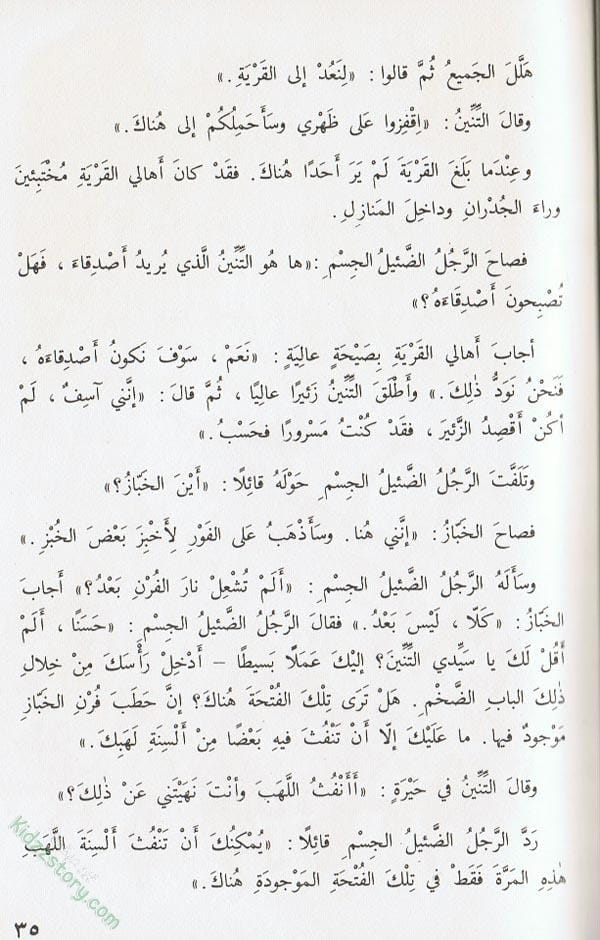 هَلَّلَ الجَميعُ ثُمَّ قالوا : «لِنَعُدْ إلى القَرْيَةِ .»
وقالَ التِّنِّينُ : «اِقْفِزوا عَلى ظَهْري وسَأَحمِلُكُمْ إلى هُناكَ .»
وعِنْدَما بَلَغَ القَرْيَةَ لَمْ يَرَ أَحَدًا هُناكَ. فقَدْ كانَ أهالي القَرْيَةِ مُخْتَبِئينَ
وراءَ الجُدْرانِ وداخِلَ المَنازِلِ.
فصاحَ الرَّجُلُ الضَّئيلُ الجِسْمِ :«ها هُو التِّنِّينُ الَّذي يُريدُ أَصْدِقاءَ ، فَهَلْ
تُصْبِحونَ أَصْدِقَاءَهُ ؟»
أجابَ أهالي القَرْيَةِ بِصَيْحَةٍ عالِيَةٍ : «نَعَمْ ، سَوْفَ نَكونُ أَصْدِقاءَهُ ،
فَنَحْنُ نَوَدُّ ذٰلِكَ .» وأَطْلَقَ التِّنِّينُ زَئيرًا عالِيًا ، ثُمَّ قالَ : «إنَّني آسِفٌ ، لَمْ
أكُنْ أَقْصِدُ الزَّئيرَ ، فقَدْ كُنْتُ مَسْرورًا فحَسْبُ .»
وتَلَفَّتَ الرَّجُلُ الضَّئيلُ الجِسْمِ حَوْلَهُ قائِلًا : «أَيْنَ الخَبّازُ؟»
فصاحَ الخَبّازُ : «إنَّني هُنا. وسَأَذْهَبُ على الفَوْرِ لِأَخْبِزَ بَعْضَ الخُبْزِ .»
وسَأَلَهُ الرَّجُلُ الضَّئيلُ الجِسْمِ : «أَلَمْ تُشْعِلْ نارَ الفُرْنِ بَعْدُ؟» أجابَ
الخَبّازُ : «كَلّا ، لَيْسَ بَعْدُ .» فقالَ الرَّجُلُ الضَّئيلُ الجِسْمِ : «حَسَنًا ، أَلَمْ
أَقُلْ لَكَ يا سَيِّدي التِّنِّينَ؟ إلَيْكَ عَمَلًا بَسيطًا – أَدْخِلْ رَأْسَكَ مِنْ خِلالِ
ذٰلِكَ البابِ الضَّخْمِ. هَلْ تَرَى تِلْكَ الفُتْحَةَ هُناكَ؟ إنَّ حَطَبَ فُرْنِ الخَبّازِ
مَوْجودٌ فيها. ما عَلَيْكَ إلّا أَنْ تَنْفُثَ فيهِ بَعْضًا مِنْ أَلْسِنَةِ لَهَبِكَ .»
وقالَ التِّنِّينُ في حَيْرَةٍ : «أَأَنْفُثُ اللَّهَبَ وأنْتَ نَهَيْتَني عَنْ ذٰلِكَ؟»
رَدَّ الرَّجُلُ الضَّئيلُ الجِسْمِ قائِلًا : «يُمْكِنُكَ أَنْ تَنْفُثَ أَلْسِنَةَ اللَّهَبِ
هٰذِهِ المَرَّةَ فَقَطْ في تِلْكَ الفُتْحَةِ المَوْجودَةِ هُناكَ .»
Kidzzstory.com
٣٥